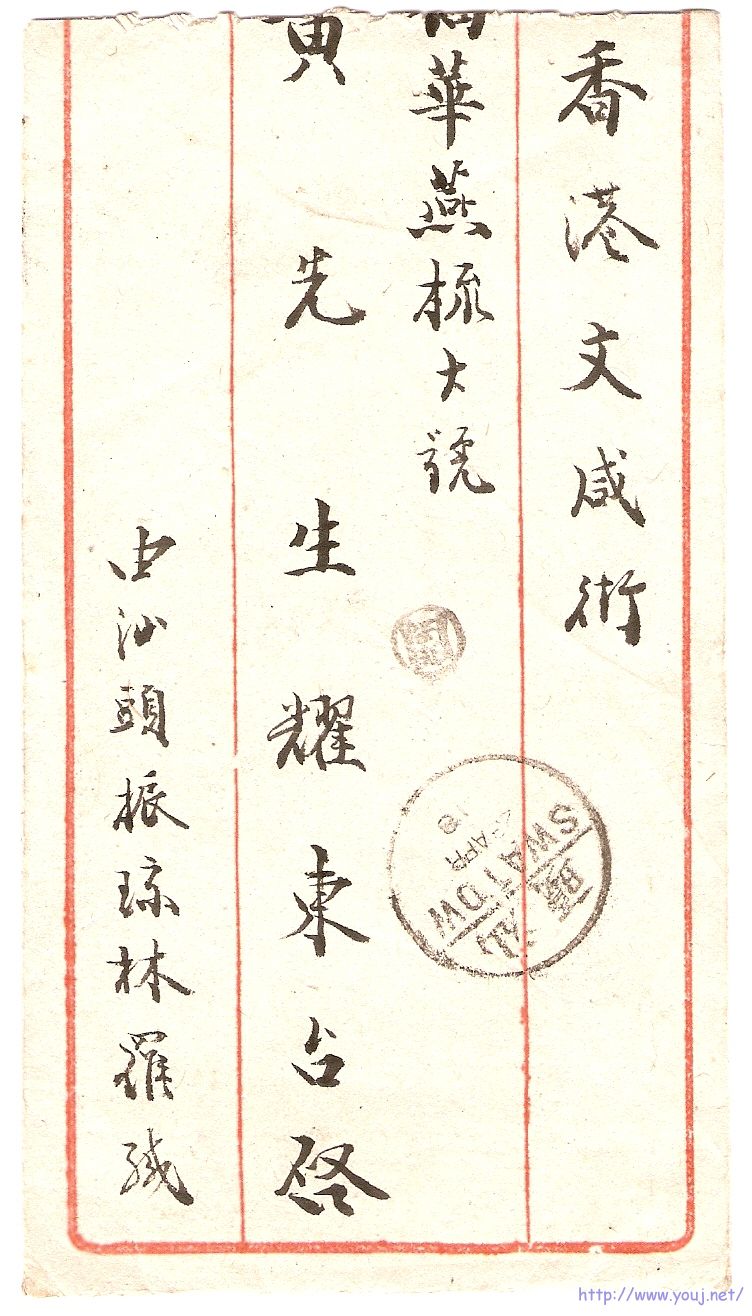 香港文咸街
華燕梳大號
黃先生耀東台啓
由汕頭振琼林羅緘
SWATOW
APR
汕頭
http://www.youj.net/